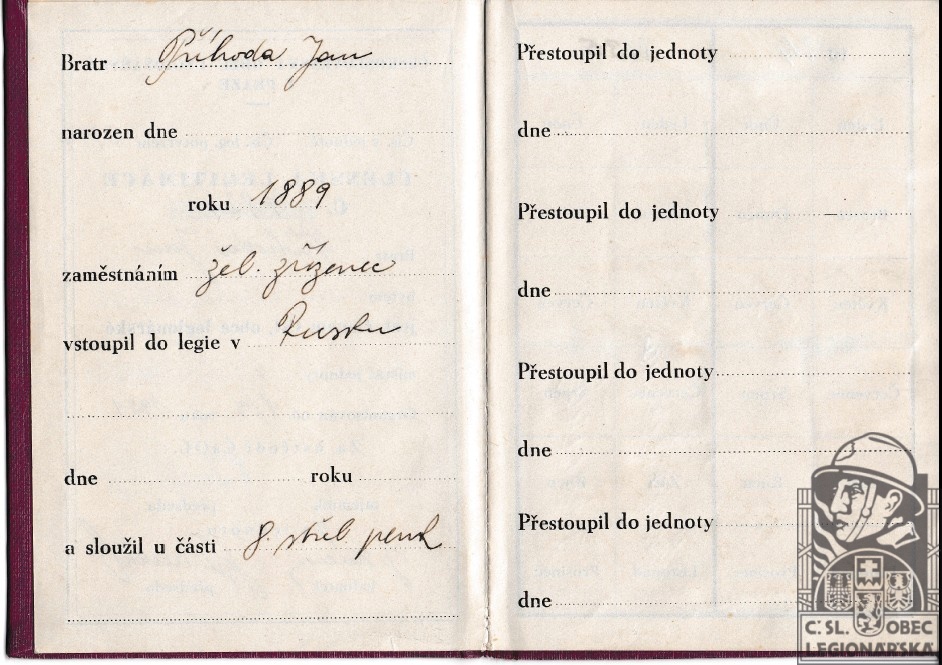 Bratr Příhoda Jan
narozen dne
roku 1889
zaměstnáním žel. zřízenec
vstoupil do legie v Rusku
dne roku
a sloužil u části 8. střel. peruk
Přestoupil do jednoty
dne
Přestoupil do jednoty
dne
Přestoupil do jednoty
dne
Přestoupil do jednoty
dne
Č. SL. OBEC
LEGIONÁŘSKÁ